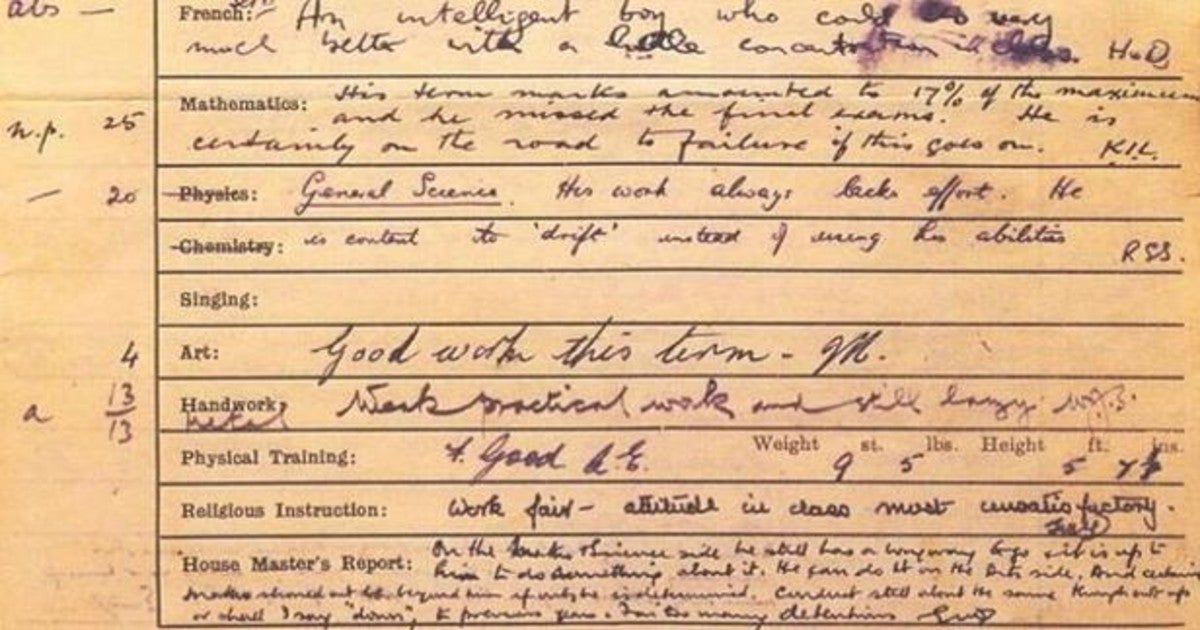 abs — French: An intelligent boy who could do very
much better with a little concentration in class. H.D.
Mathematics: His term marks amounted to 17% of the maximum
n.p. 25 and he missed the final exams. He is
certainly on the road to failure if this goes on. K.I.L.
— 20 Physics: General Science. His work always lacks effort. He
Chemistry: is content to 'drift' instead of using his abilities R.S.S.
Singing:
4 Art: Good work this term - JM.
a 13/13 Handwork: Weak practical work and still lazy. W.J.B.
Metal
Weight st. lbs. Height ft. ins.
Physical Training: F. Good A.E. 9 5 5 7
Religious Instruction: Work fair - attitude in class most unsatisfactory.
House Master's Report: On the Maths & Science side he still has a long way to go & it is up to
him to do something about it. He can do it on the Arts side. And
Maths should not be beyond him if only he is determined. Conduct still about the same though
or shall I say "down", to previous years. Far too many detentions